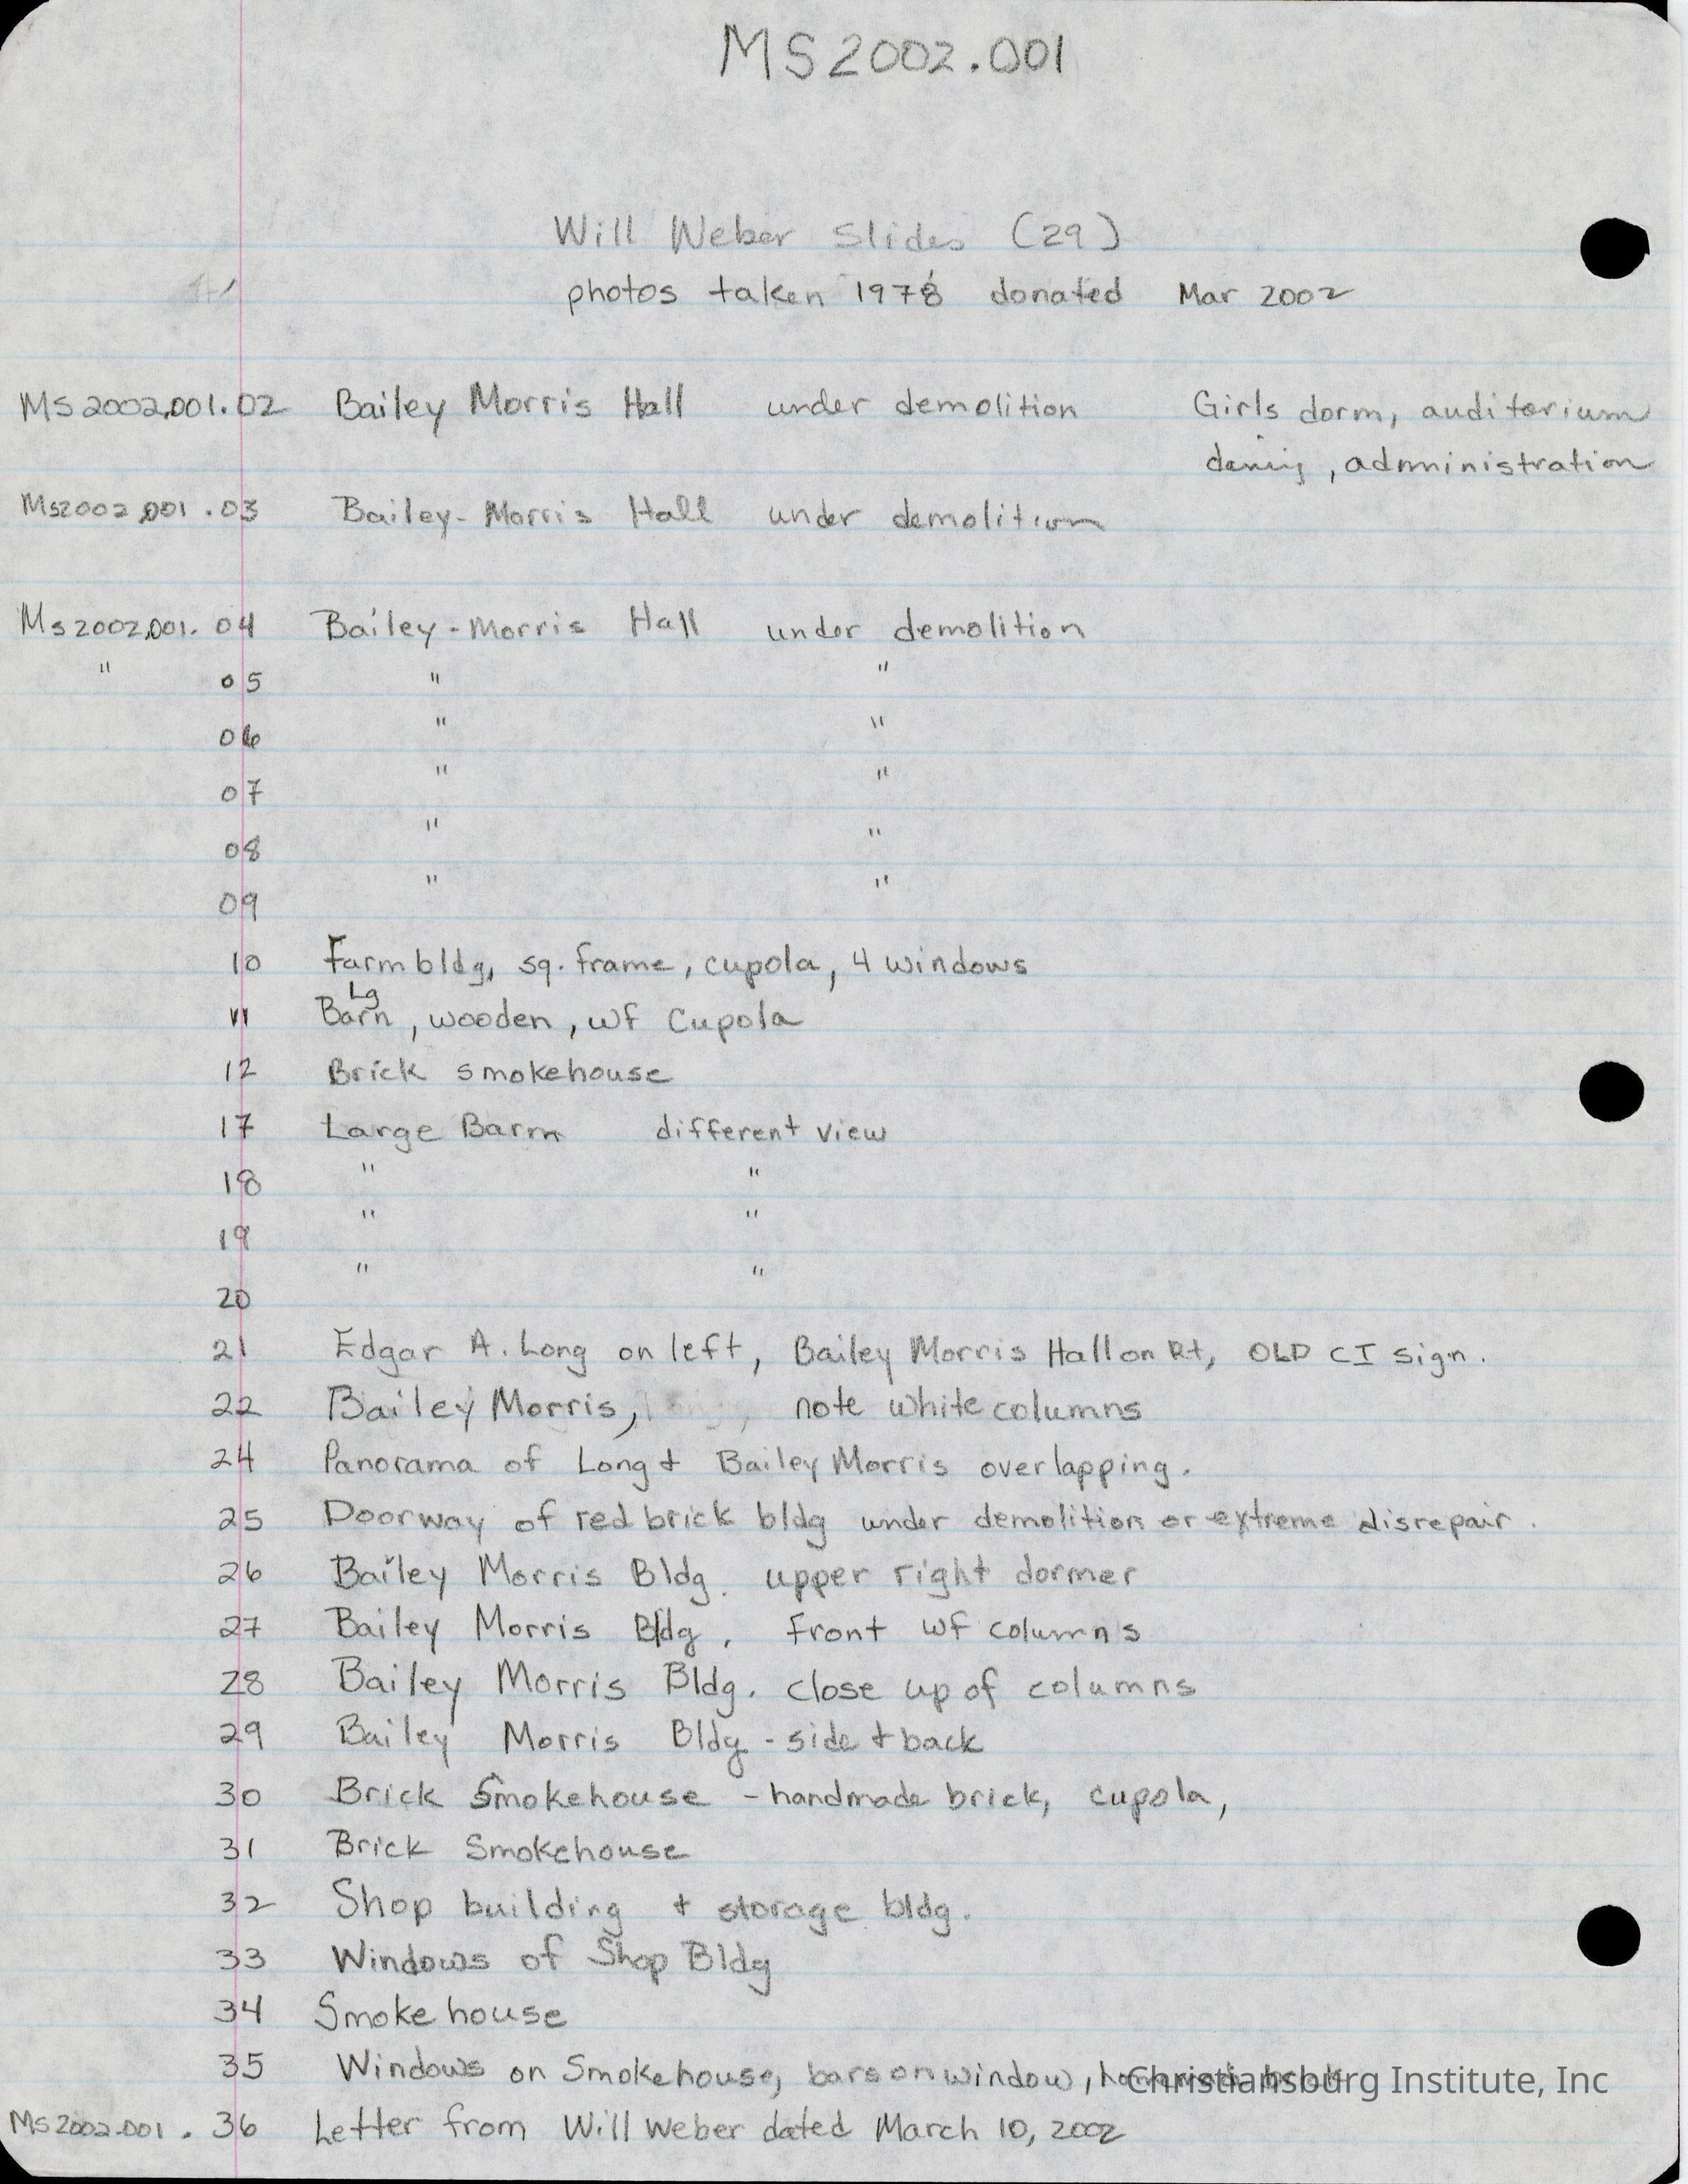 MS2002.001
Will Weber Slides (29)
photos taken 1978 donated Mar 2002
MS2002.001.02 Bailey Morris Hall under demolition Girls dorm, auditorium
, administration
MS2002.001.03 Bailey-Morris Hall under demolition
Ms2002.001.04 Bailey-Morris Hall under demolition
" 05 " "
06 " "
07 " "
08 " "
09 " "
10 Farm bldg, sq. frame, cupola, 4 windows
Lg
11 Barn, wooden, wf Cupola
12 Brick smokehouse
17 Large Barn different view
18 " "
19 " "
20 " "
21 Edgar A. Long on left, Bailey Morris Hall on Rt, OLD CI sign.
22 Bailey Morris, note white columns
24 Panorama of Long + Bailey Morris overlapping.
25 Doorway of red brick bldg under demolition or extreme disrepair.
26 Bailey Morris Bldg. upper right dormer
27 Bailey Morris Bldg, Front wf columns
28 Bailey Morris Bldg. close up of columns
29 Bailey Morris Bldg - side + back
30 Brick Smokehouse - handmade brick, cupola,
31 Brick Smokehouse
32 Shop building + storage bldg.
33 Windows of Shop Bldg
34 Smoke house
35 Windows on Smokehouse, bars on window,
Christiansburg Institute, Inc
MS2002.001.36 Letter from Will Weber dated March 10, 2002